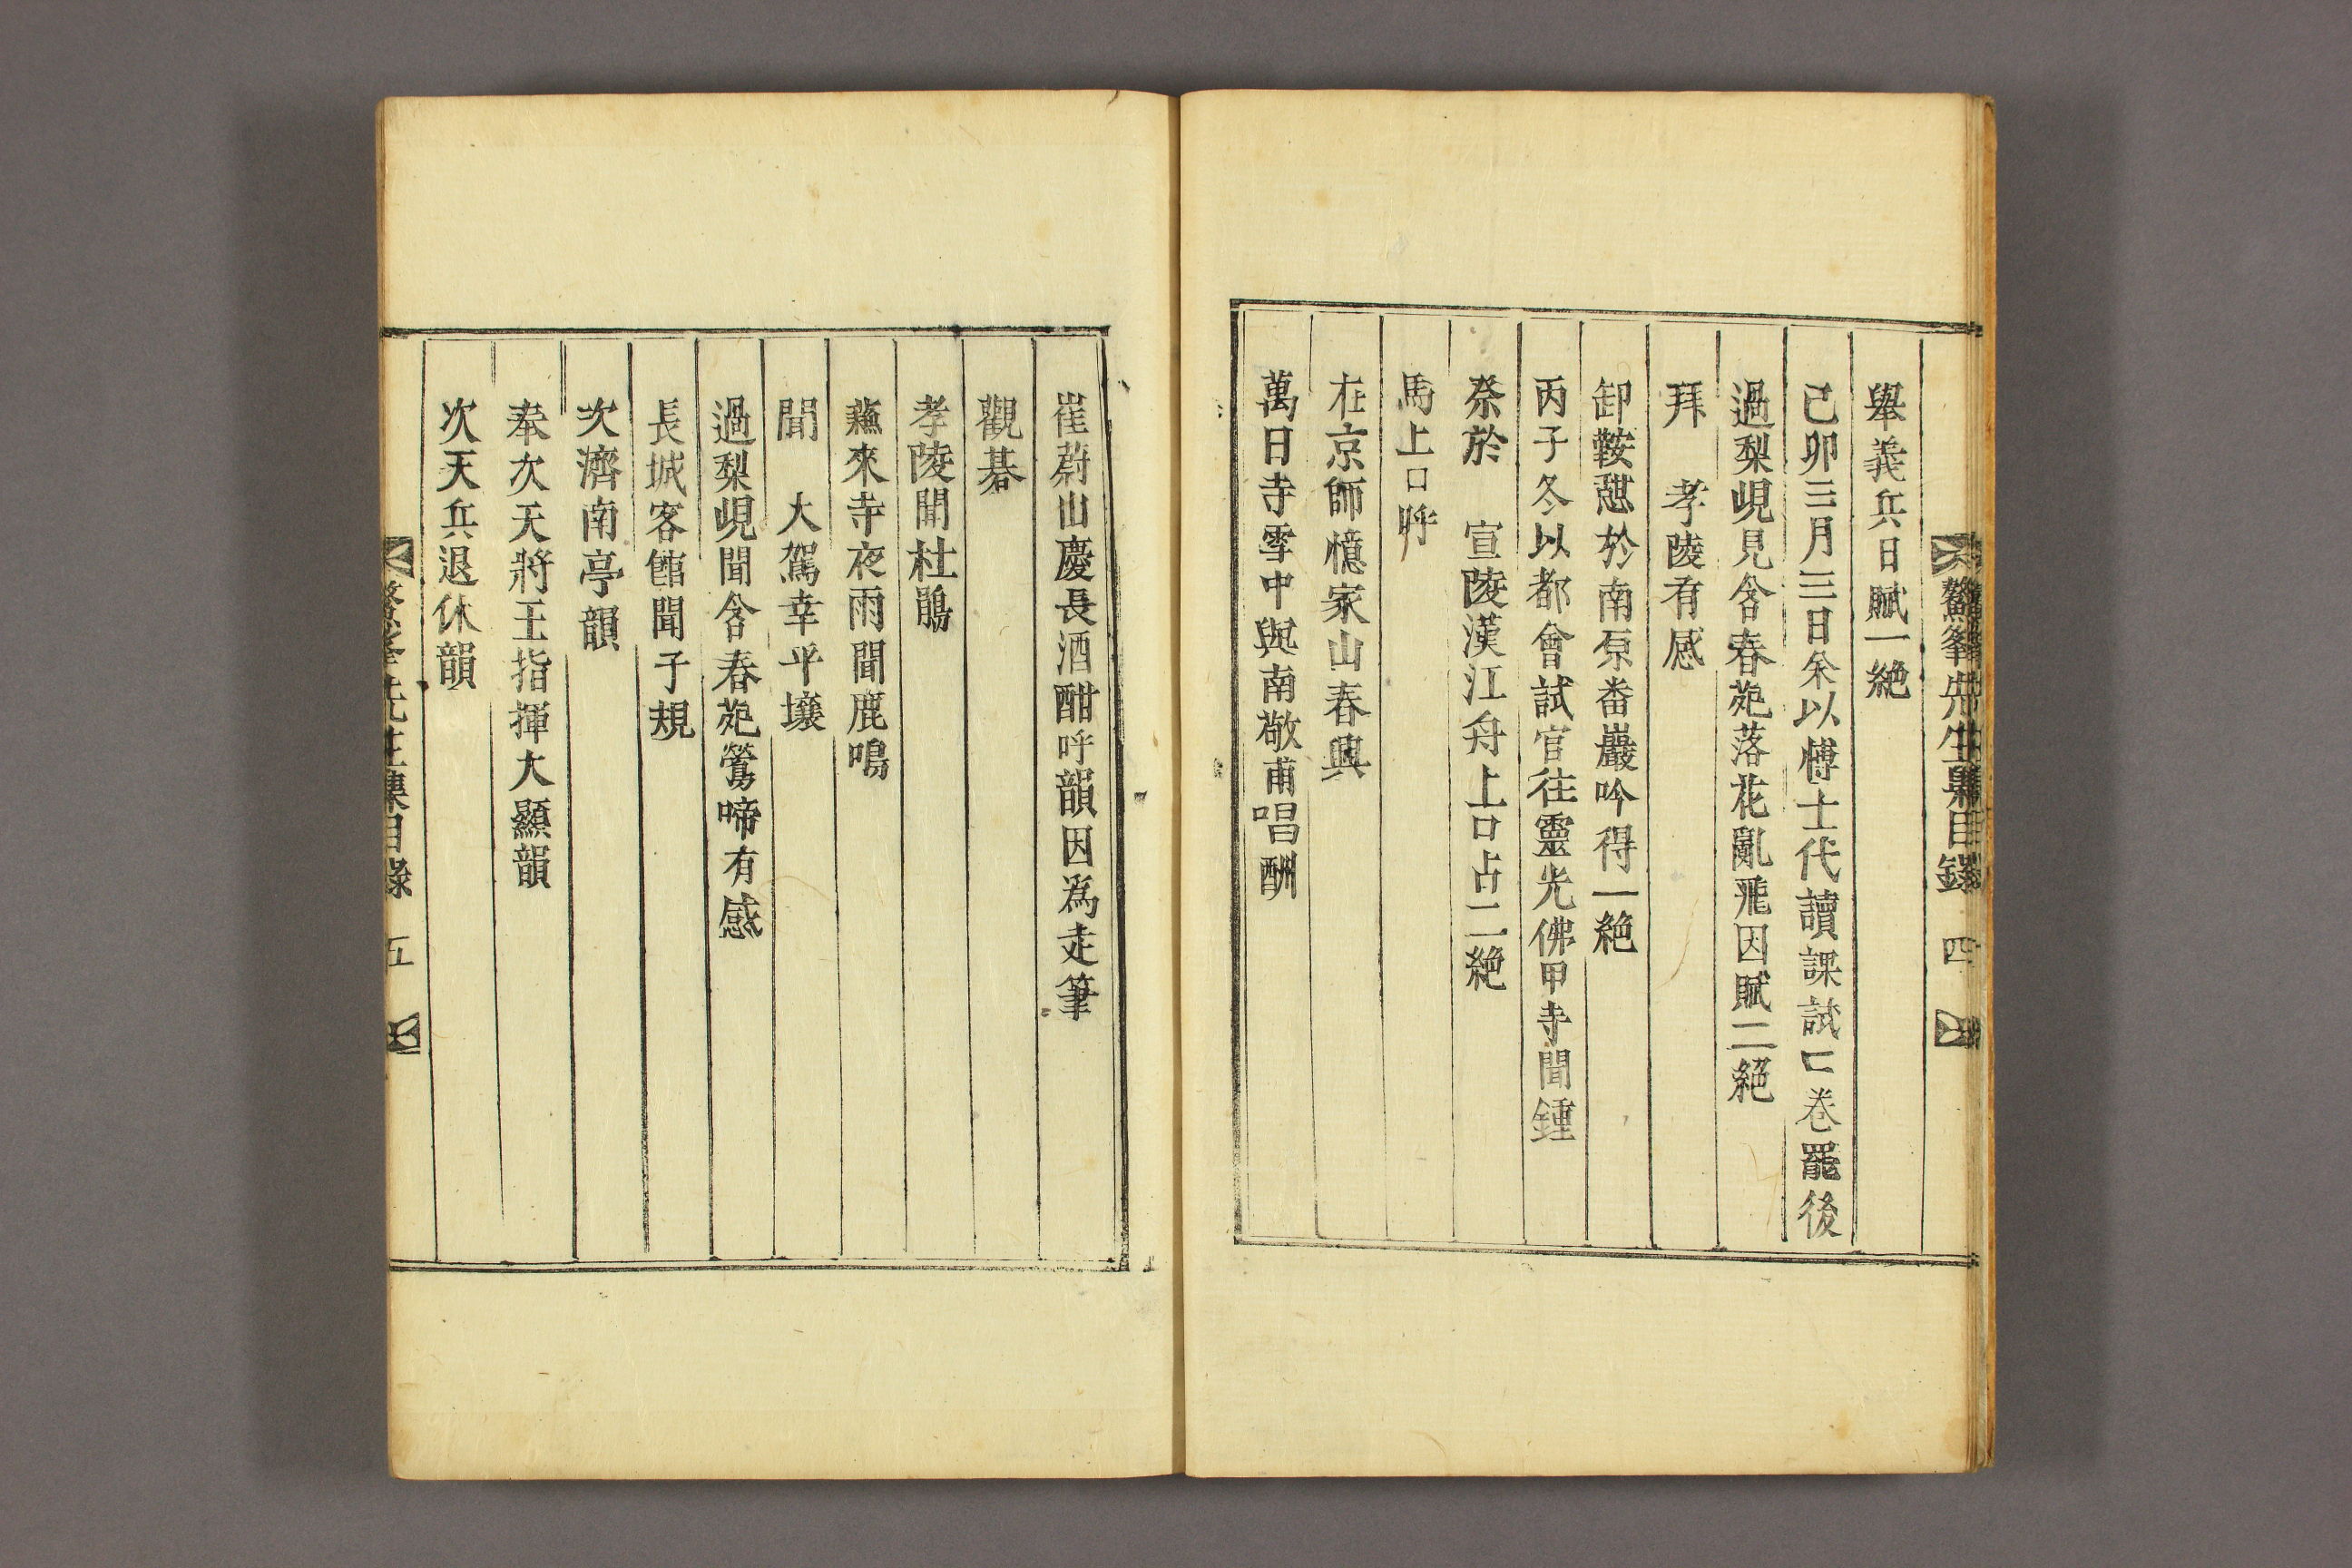 鰲峯先生集目錄 四
擧義兵日賦一絶
己卯三月三日余以博士代讀課試亡卷罷後
過梨峴見含春苑落花亂飛因賦二絶
拜 孝陵有感
卸鞍憇於南原畨巖吟得一絶
丙子冬以都會試官往靈光佛甲寺聞鍾
祭於 宣陵漢江舟上口占二絶
馬上口呼
在京師憶家山春興
萬日寺雪中與南敬甫唱酬
崔蔚山慶長酒酣呼韻因爲走筆
觀碁
孝陵聞杜鵑
蘓來寺夜雨聞鹿鳴
聞 大駕幸平壤
過梨峴聞含春苑鶯啼有感
長城客館聞子規
次濟南亭韻
奉次天將王指揮大顯韻
次天兵退休韻
鰲峯先生集目錄 五